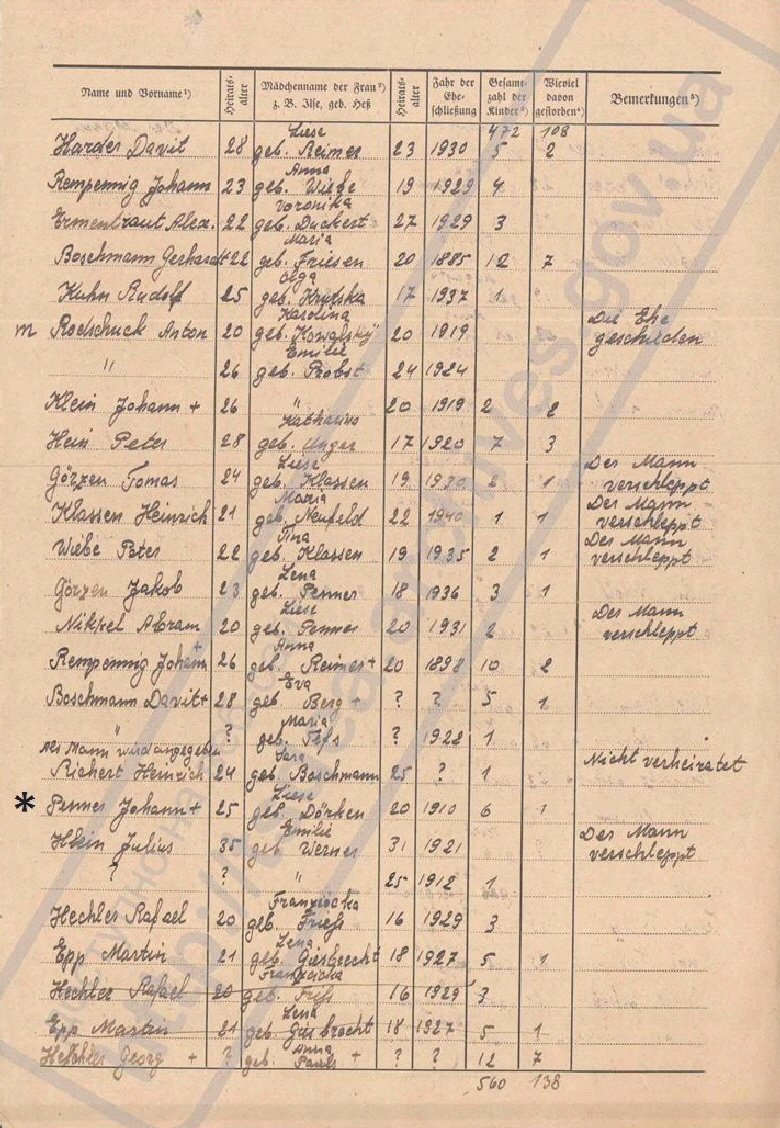 Name und Vorname¹) Heirats-alter Mädchenname der Frau²) z. B. Ilse, geb. Heß Heirats-alter Jahr der Eheschließung Gesamtzahl der Kinder³) Wieviel davon gestorben⁴) Bemerkungen⁵)
472 108
Liese
Harder Davit 28 geb. Reimer 23 1930 5 2
Anna
Rempennig Johann 23 geb. Wiebe 19 1929 4
Voronika
Ermentraut Alex. 22 geb. Duckest 27 1929 3
Maria
Boschmann Gerhardt 22 geb. Friesen 20 1885 12 7
Olga
Kuhn Rudolf 25 geb. 17 1937 1
Karolina Die Ehe
m Rodschuck Anton 20 geb. Kowalsky 20 1919 geschieden
Emilie
" 26 geb. Probst 24 1924
Klein Johann + 26 " 20 1919 2 2
Katharina
Hein Peter 28 geb. Unger 17 1920 7 3
Liese Der Mann
Görzen Tomas 24 geb. Klassen 19 1930 2 1 verschleppt
Maria Der Mann
Klassen Heinrich 21 geb. Neufeld 22 1940 1 1 verschleppt
Tina Der Mann
Wiebe Peter 22 geb. Klassen 19 1935 2 1 verschleppt
Lena
Görzen Jakob 23 geb. Penner 18 1936 3 1
Liese Der Mann
Nikkel Abram 20 geb. Penner 20 1931 2 verschleppt
Anna
Rempennig Johann + 26 geb. Reimer + 20 1898 10 2
Eva
Boschmann Davit + 28 geb. Berg + ? ? 5 1
Maria
" ? geb. Tefs ? 1922 1
Als Mann wird angegeben Sara Nicht verheiratet
Richert Heinrich 24 geb. Boschmann 25 ? 1
Liese
* Penner Johann + 25 geb. Dörken 20 1910 6 1
Emilie Der Mann
Hein Julius 35 geb Werner 31 1921 verschleppt
? ? " 25 1912 1
Franziska
Hechler Rafael 20 geb. Frieß 16 1929 3
Lena
Epp Martin 21 geb. Giesbrecht 18 1927 5 1
Franziska
Hechler Rafael 20 geb. Friß 16 1929 3
Lena
Epp Martin 21 geb Giesbrecht 18 1927 5 1
Anna
Hechler Georg + ? geb. Pauls + ? ? 12 7
560 138